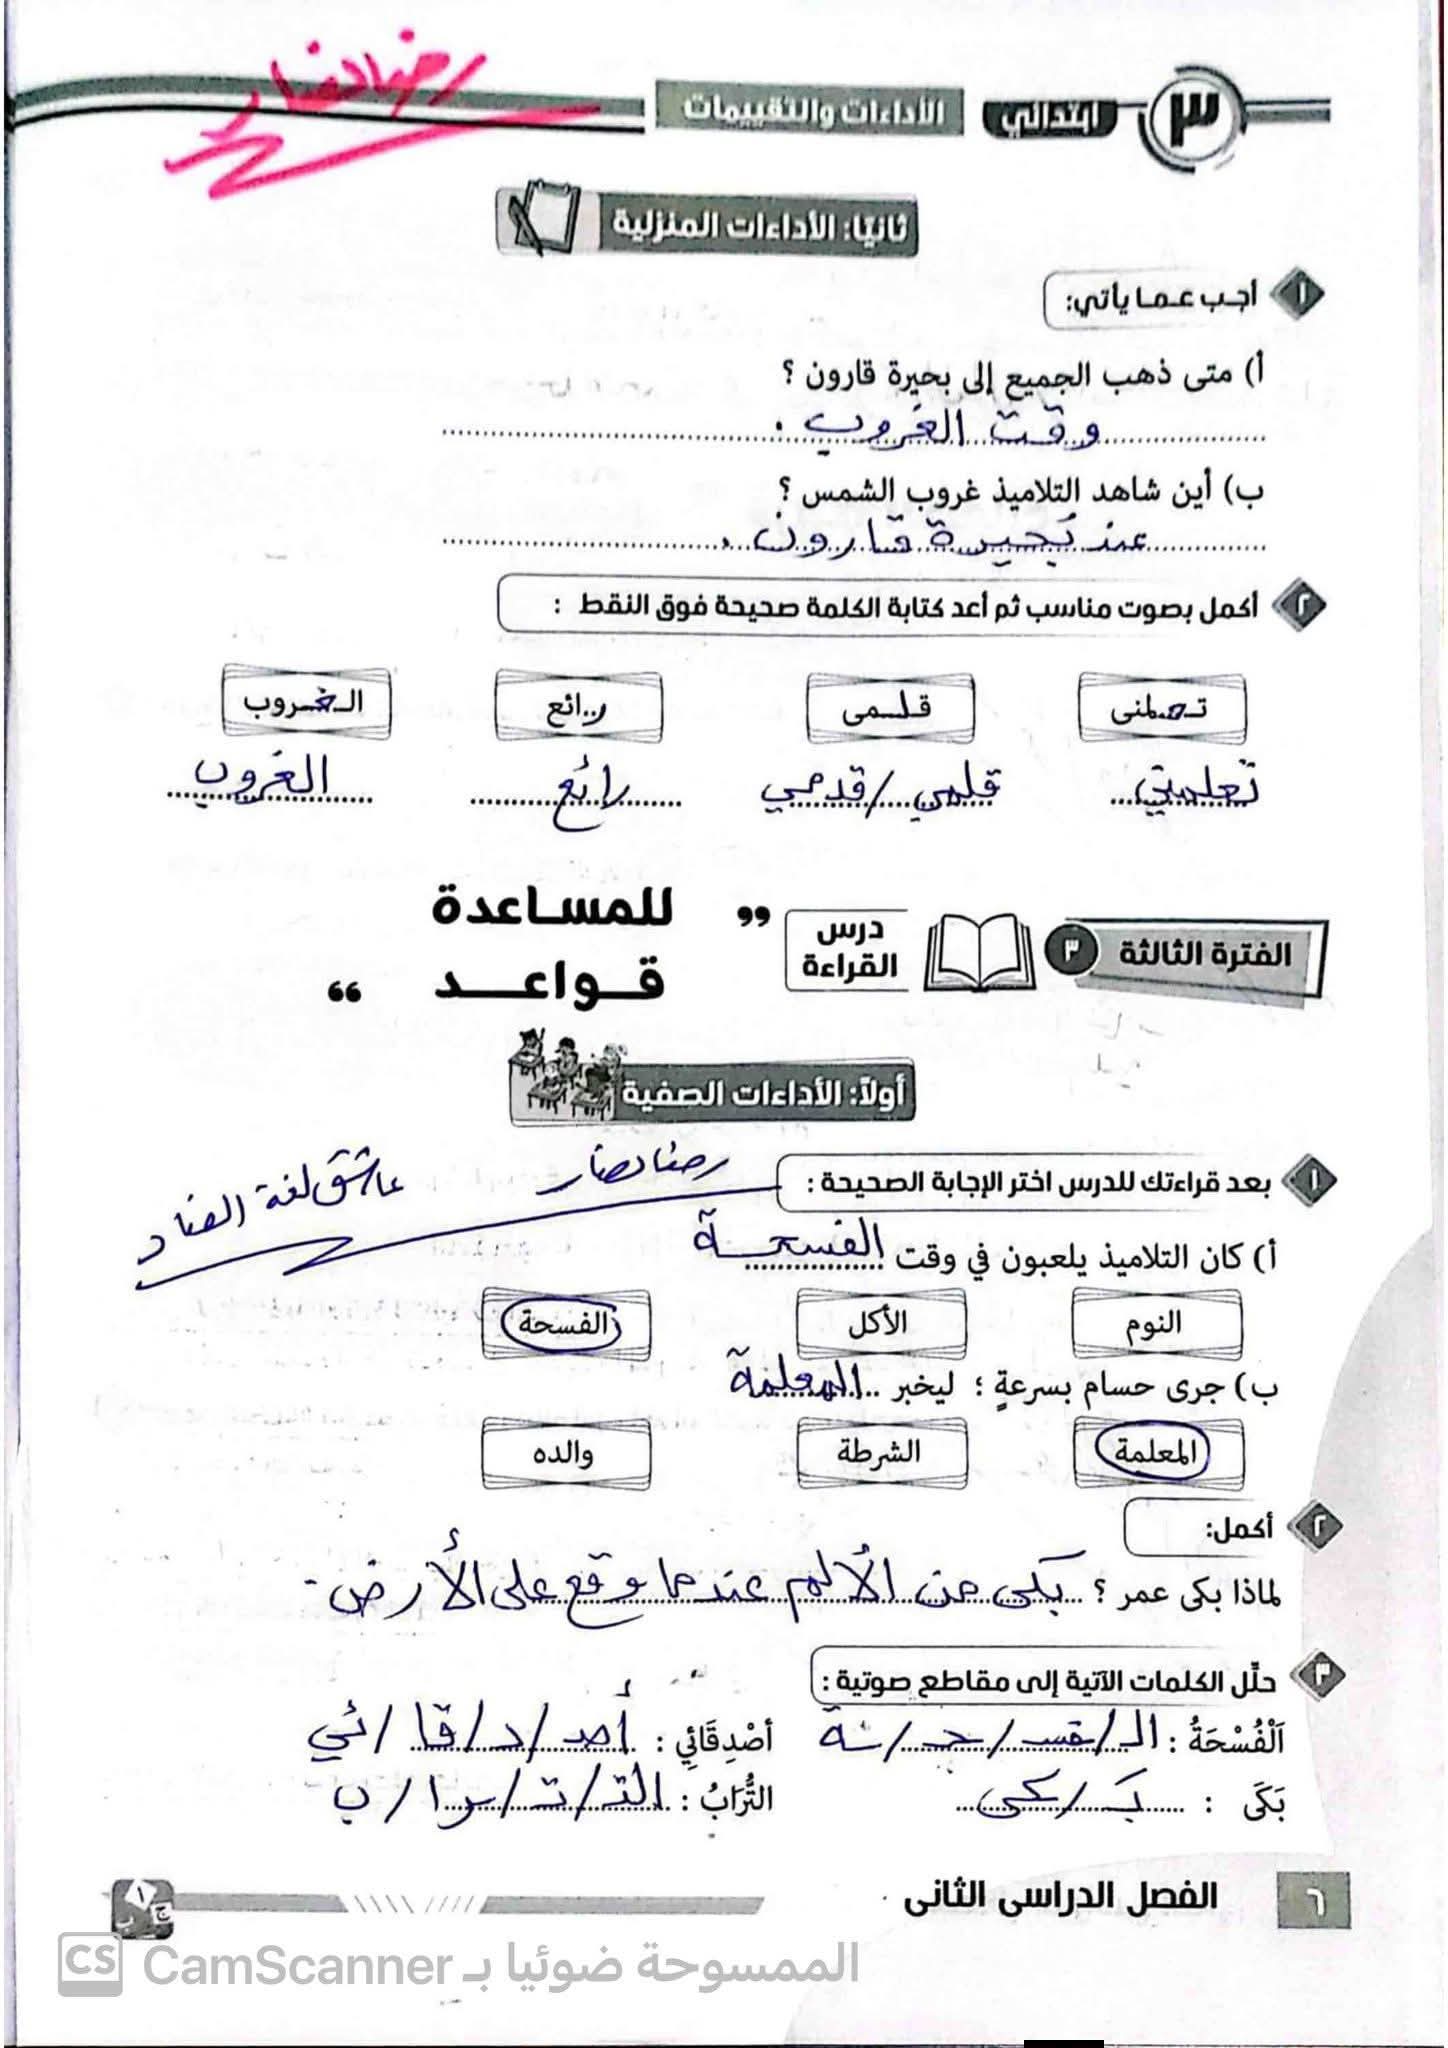 رضا نصار
٣ ابتدائي الأداءات والتقييمات
ثانيًا: الأداءات المنزلية
١ أجب عما يأتي:
أ) متى ذهب الجميع إلى بحيرة قارون ؟
وقت الغروب .
ب) أين شاهد التلاميذ غروب الشمس ؟
عند بُحيرة قارون .
٢ أكمل بصوت مناسب ثم أعد كتابة الكلمة صحيحة فوق النقط :
تـعـلمنى قـلـمى ر..ائع الـغـروب
تعلمني قلمي / قدمي رائع الغروب
الفترة الثالثة ٣ درس القراءة " للمساعدة
قواعد "
أولًا: الأداءات الصفية
١ بعد قراءتك للدرس اختر الإجابة الصحيحة :
رضا نصار عاشق لغة الضاد
أ) كان التلاميذ يلعبون في وقت الفسحـة
النوم الأكل الفسحة
ب) جرى حسام بسرعةٍ ؛ ليخبر المعلمة
المعلمة الشرطة والده
٢ أكمل:
لماذا بكى عمر ؟ بكى من الألم عندما وقع على الأرض .
٣ حلّل الكلمات الآتية إلى مقاطع صوتية :
اَلْفُسْحَةُ : الـ / فسـ / حـ / ـة أصْدِقَائِي : أصد / د / قا / ئي
بَكَى : بَـ / ـكى التُّرَابُ : التـ / تـ / ـرا / ب
٦ الفصل الدراسى الثانى
ا ب ج
CS الممسوحة ضوئيا بـ CamScanner